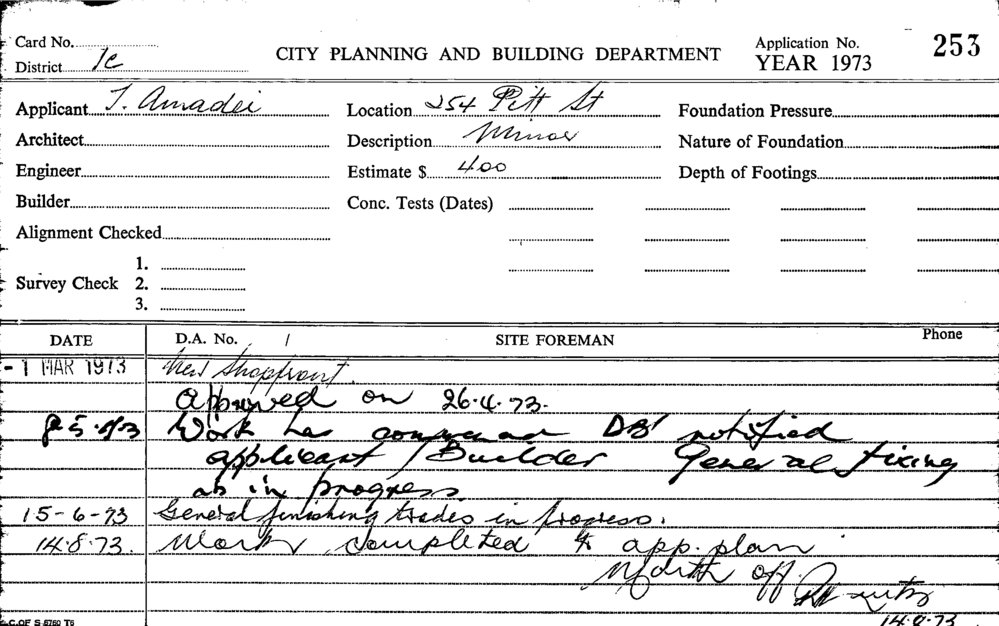 Card No.
CITY PLANNING AND BUILDING DEPARTMENT
Application No. 253
District 1c
YEAR 1973
Applicant J. Amadei
Location 254 Pitt St
Foundation Pressure
Architect
Description Minor
Nature of Foundation
Engineer
Estimate $ 400
Depth of Footings
Builder
Conc. Tests (Dates)
Alignment Checked
Survey Check
1.
2.
3.
DATE
D.A. No. /
SITE FOREMAN
Phone
- 1 MAR 1973 New Shopfront.
Approved on 26.4.73.
Work has commenced DBI notified
applicant / Builder General fixing
as in progress
15-6-73 General finishing trades in progress.
14.8.73. Work completed to app. plan
off.
14.8.73
C.OF S 5760 T6